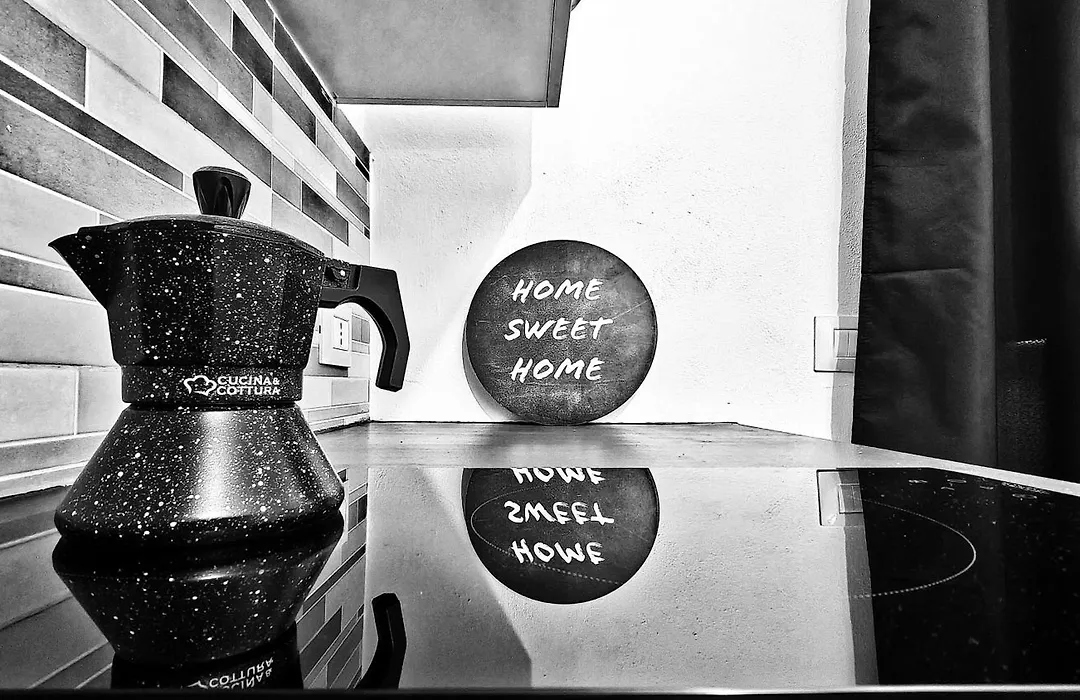 HOME
SWEET
HOME
CUCINA&
COTTURA
HOME
SWEET
HOME
COTTURA
CUCINA&